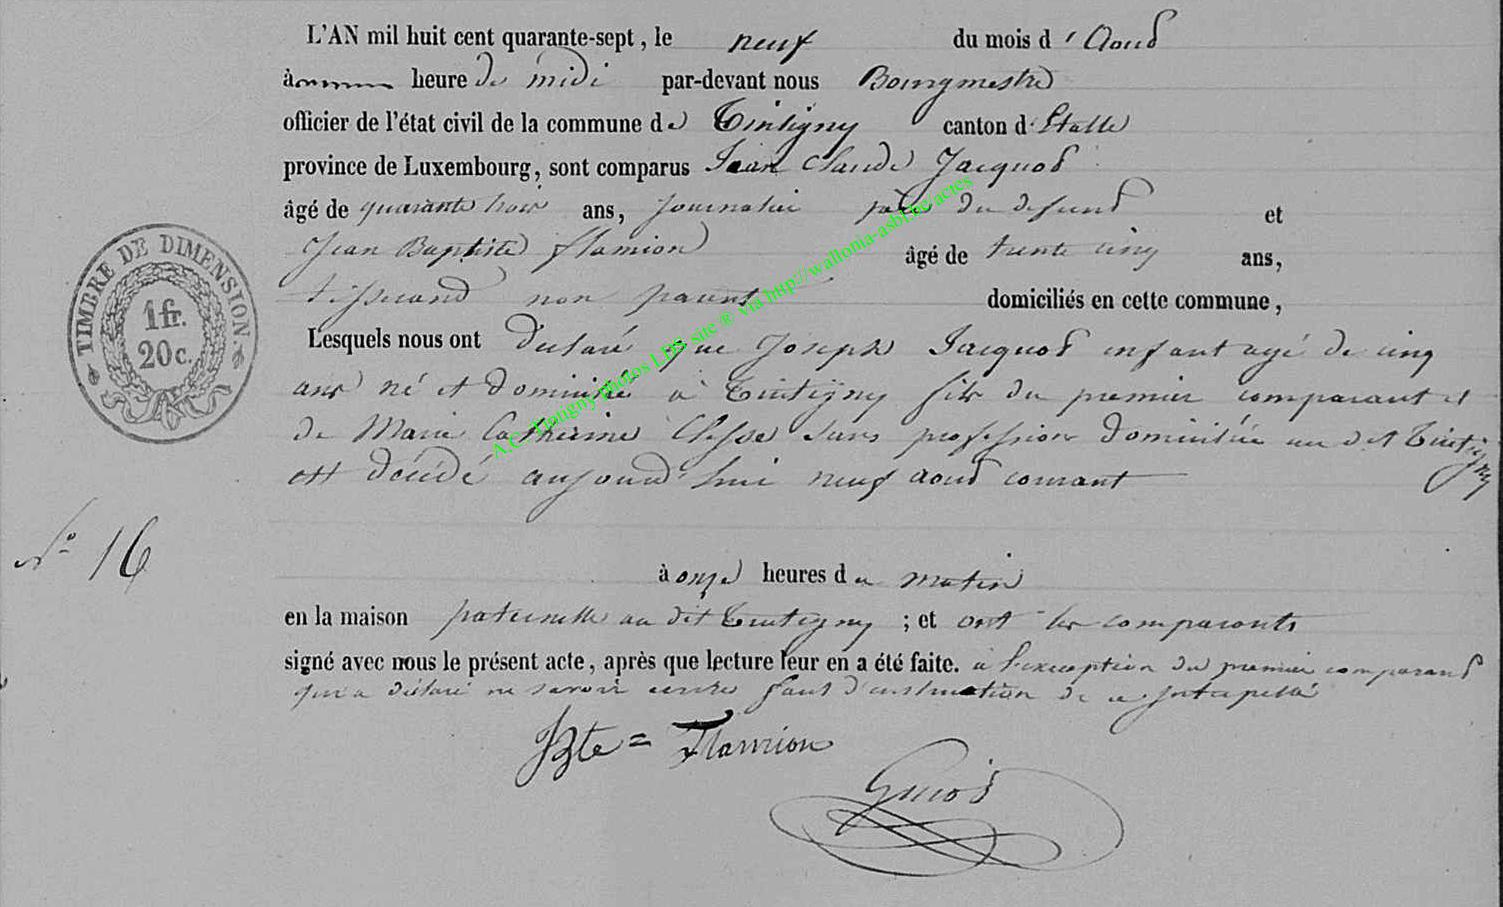 L'AN mil huit cent quarante-sept, le neuf du mois d'Aout
à heure de midi par-devant nous Bourgmestre
officier de l'état civil de la commune de Tintigny canton d'Etalle
province de Luxembourg, sont comparus Jean Claude Jacquot
âgé de quarante trois ans, journalier père du defunt et
Jean Baptiste flamion âgé de trente cinq ans,
tisserand non parent domiciliés en cette commune,
Lesquels nous ont declaré que Joseph Jacquot enfant agé de cinq
ans né et domicilié à Tintigny fils du premier comparant et
de Marie Catherine Clesse sans profession domiciliée au dit Tintigny
est décédé aujourd'hui neuf aout courant
N° 16
à onze heures du matin
en la maison paternelle au dit Tintigny ; et ont les comparants
signé avec nous le présent acte, après que lecture leur en a été faite. à l'exception du premier comparant
qui a déclaré ne savoir ecrire faut d'instruction de ce interpellé
JBte = Flamion
Guiot
TIMBRE DE DIMENSION.
1 fr.
20 c.
A.C. Tintigny photos LDS site ® via http://wallonia-asbl.be/actes